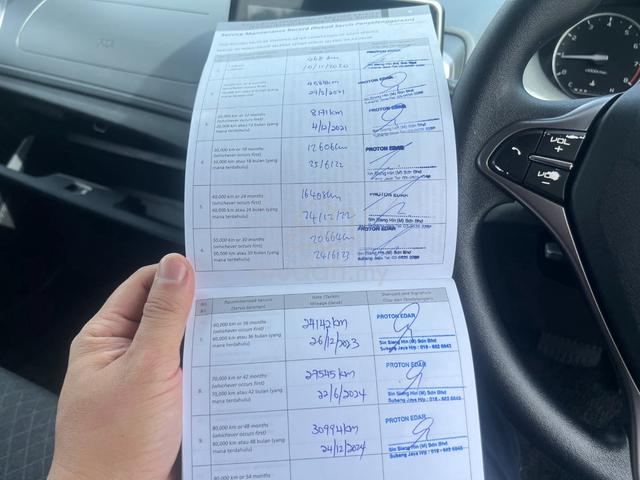 Service Maintenance Record (Rekod Servis Penyelenggaraan)
468 km
10/11/2020
PROTON EDAR
4584km
24/5/2021
PROTON EDAR
Sin Siang Hin (M) Sdn Bhd
3.
20,000 km or 12 months
(whichever occurs first)
20,000 km atau 12 bulan (yang
mana terdahulu)
8171km
4/12/2021
PROTON EDAR
Sin Siang Hin (M) Sdn Bhd
4.
30,000 km or 18 months
(whichever occurs first)
30,000 km atau 18 bulan (yang
mana terdahulu)
12606km
25/6/22
PROTON EDAR
Sin Siang Hin (M) Sdn Bhd
5.
40,000 km or 24 months
(whichever occurs first)
40,000 km atau 24 bulan (yang
mana terdahulu)
16408km
24/12/22
PROTON EDAR
Sin Siang Hin (M) Sdn Bhd
6.
50,000 km or 30 months
(whichever occurs first)
50,000 km atau 30 bulan (yang
mana terdahulu)
20664km
24/6/23
PROTON EDAR
Sin Siang Hin (M) Sdn Bhd
No.
Recommended Service
(Servis Saranan)
Date (Tarikh)
Mileage (Jarak)
7.
60,000 km or 36 months
(whichever occurs first)
60,000 km atau 36 bulan (yang
mana terdahulu)
24142km
26/12/2023
PROTON EDAR
Sin Siang Hin (M) Sdn Bhd
Subang Jaya H/p : 018 - 662 6643
8.
70,000 km or 42 months
(whichever occurs first)
70,000 km atau 42 bulan (yang
mana terdahulu)
27545km
22/6/2024
PROTON EDAR
Sin Siang Hin (M) Sdn Bhd
Subang Jaya H/p : 018 - 662 6643
9.
80,000 km or 48 months
(whichever occurs first)
80,000 km atau 48 bulan (yang
mana terdahulu)
30994km
24/12/2024
PROTON EDAR
Sin Siang Hin (M) Sdn Bhd
Subang Jaya H/p : 018 - 662 6643
90,000 km or 54 months
VOL
+
VOL